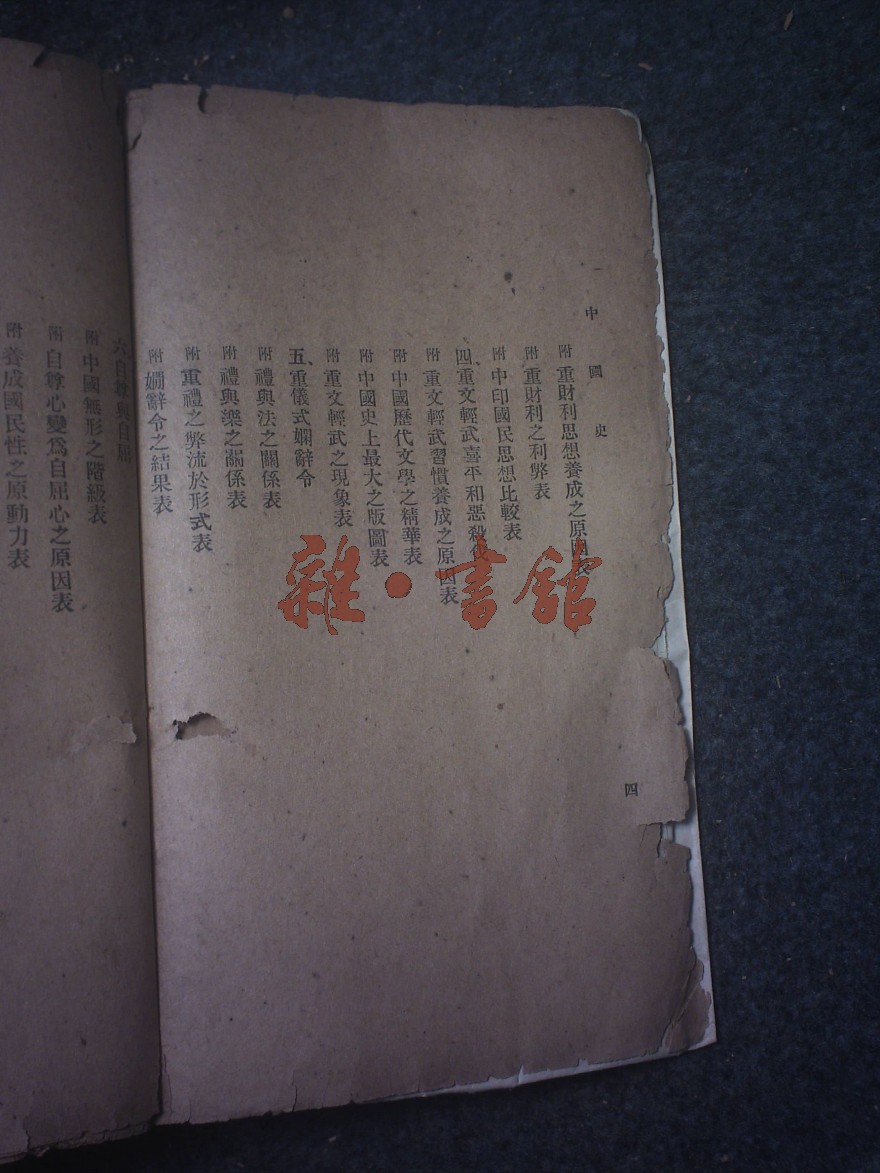 中國史
附 重財利思想養成之原因表
附 重財利之利弊表
附 中印國民思想比較表
四、重文輕武喜平和惡殺伐
附 重文輕武習慣養成之原因表
附 中國歷代文學之精華表
附 中國史上最大之版圖表
附 重文輕武之現象表
五、重儀式嫻辭令
附 禮與法之關係表
附 禮與樂之關係表
附 重禮之弊流於形式表
附 嫻辭令之結果表
四
六、自尊與自屈
附 中國無形之階級表
附 自尊心變爲自屈心之原因表
附 養成國民性之原動力表
雜·書館